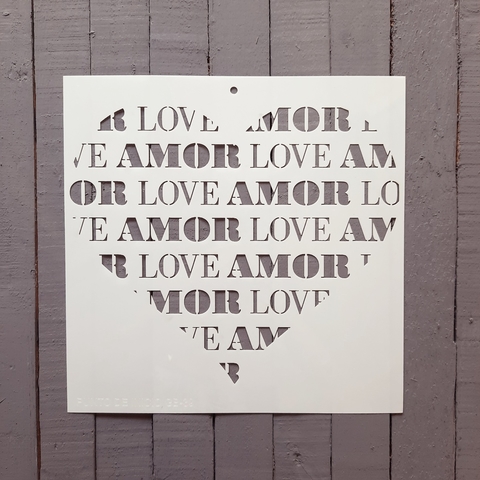 R LOVE AMOR L
VE AMOR LOVE AM
OR LOVE AMOR LO
VE AMOR LOVE AM
R LOVE AMOR L
MOR LOVE
VE AM
R